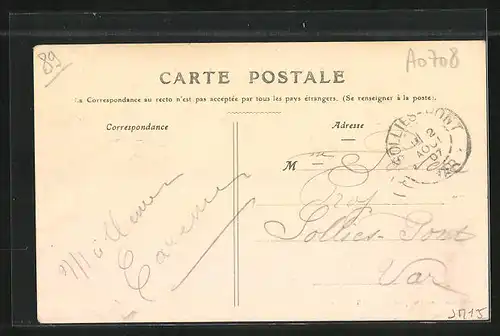 89
A0708
CARTE POSTALE
La Correspondance au recto n'est pas acceptée par tous les pays étrangers. (Se renseigner à la poste).
Correspondance
Adresse
SOLLIES-PONT
2
AOUT
07
VAR
M
Solliès-Pont
Var
JM15